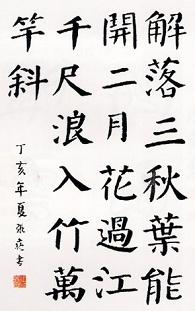 解落三秋葉能
開二月花過江
千尺浪入竹萬
竿斜
丁亥年夏張堯書